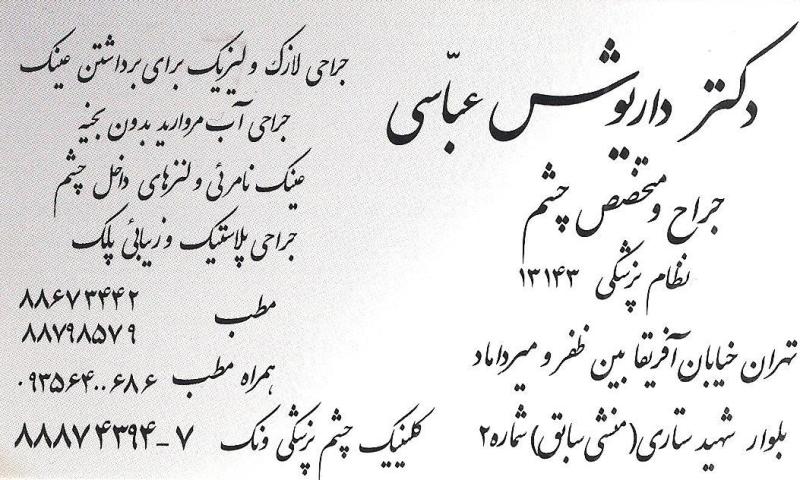 دکتر داریوش عبّاسی
جراح و متخصص چشم
نظام پزشکی ۱۳۱۴۳
تهران خیابان آفریقا بین ظفر و میرداماد
بلوار شهید ستاری (منشی سابق) شماره ۲
جراحی لازک و لیزیک برای برداشتن عینک
جراحی آب مروارید بدون بخیه
عینک نامرئی و لنزهای داخل چشم
جراحی پلاستیک و زیبائی پلک
مطب ۸۸۶۷۳۴۴۲
۸۸۷۹۸۵۷۹
همراه مطب ۰۹۳۵۶۴۰۰۶۸۶
کلینیک چشم پزشکی ونک ۷-۸۸۸۷۴۳۹۴